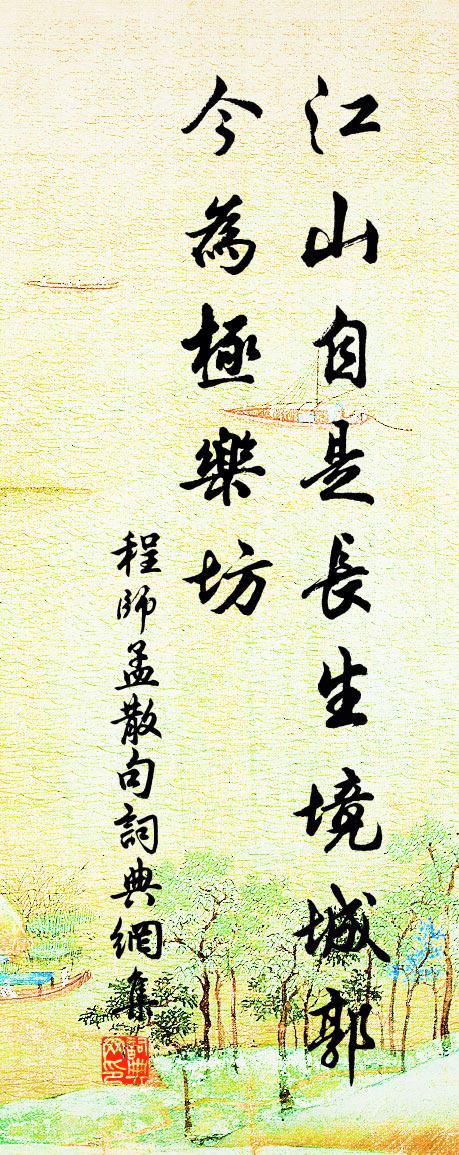 江山自是長生境城郭
今為極樂坊
程師孟散句詞典網集